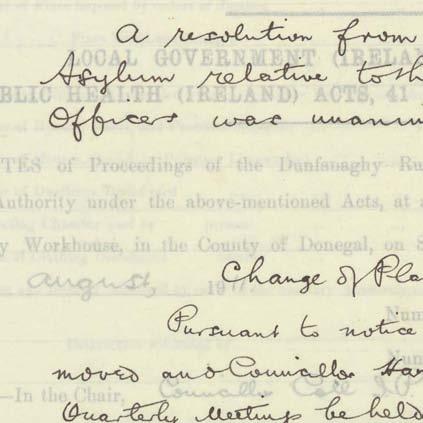 A resolution from
LOCAL GOVERNMENT (IRELAN
Asylum relative to th
BLIC HEALTH (IRELAND) ACTS, 41
Officers was unanim
TES of Proceedings of the Dunfanaghy Ru
Authority under the above-mentioned Acts, at a
y Workhouse, in the County of Donegal, on S
August, 19
Change of Pla
Pursuant to notice
Num
moved and Councillor Ha
Num
—In the Chair, Councillor J.P.
Quarterly Meetings be held